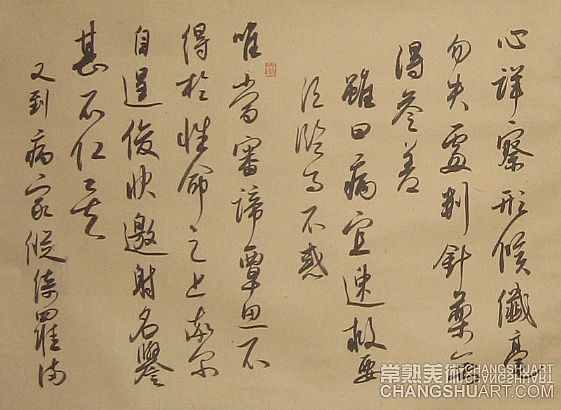 心詳察形候纖毫
勿失處判針藥無
得參差
雖曰病宜速救要
須臨事不惑
唯當審諦覃思不
得於性命之上率尔
自逞俊快邀射名譽
甚不仁矣
又到病家縱綺羅滿
常熟美術 CHANGSHUART
CHANGSHUART.COM